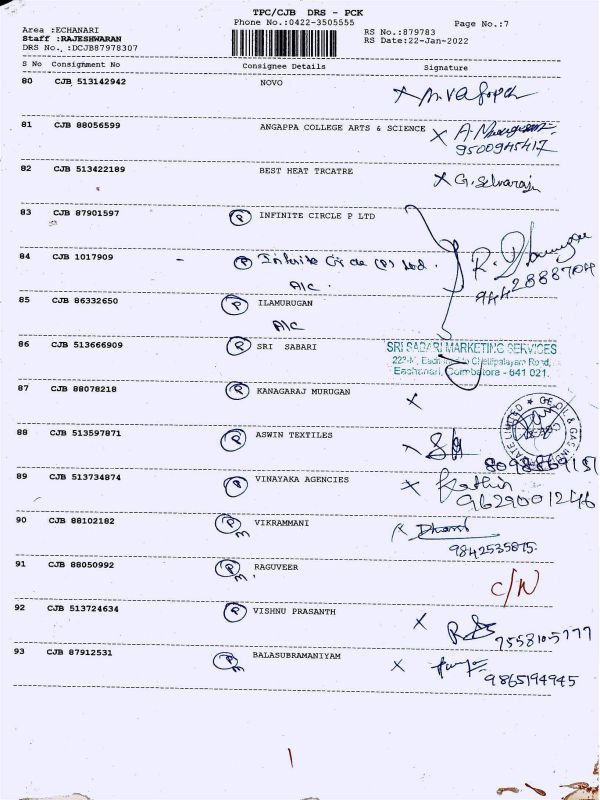 TPC/CJB DRS - PCK
Phone No.:0422-3505555 Page No.:7
Area :ECHANARI RS No.:879783
Staff :RAJESHWARAN RS Date:22-Jan-2022
DRS No. :DCJB87978307
S No Consignment No Consignee Details Signature
80 CJB 513142942 NOVO
81 CJB 88056599 ANGAPPA COLLEGE ARTS & SCIENCE
9500945417
82 CJB 513422189 BEST HEAT TRCATRE G. Selvaraj
83 CJB 87901597 P INFINITE CIRCLE P LTD
84 CJB 1017909 - P Infinite Circle (P) Ltd.
A/C
9442888704
85 CJB 86332650 P ILAMURUGAN
A/C
86 CJB 513666909 P SRI SABARI SRI SABARI MARKETING SERVICES
Chettipalayam Road,
Eachanari, Coimbatore - 641 021.
87 CJB 88078218 P KANAGARAJ MURUGAN X
88 CJB 513597871 P ASWIN TEXTILES X
89 CJB 513734874 P VINAYAKA AGENCIES X
9629001246
90 CJB 88102182 P VIKRAMMANI
M 9842535875.
91 CJB 88050992 P RAGUVEER
M. C/N
92 CJB 513724634 P VISHNU PRASANTH X
93 CJB 87912531 P BALASUBRAMANIYAM X
M 9865194945